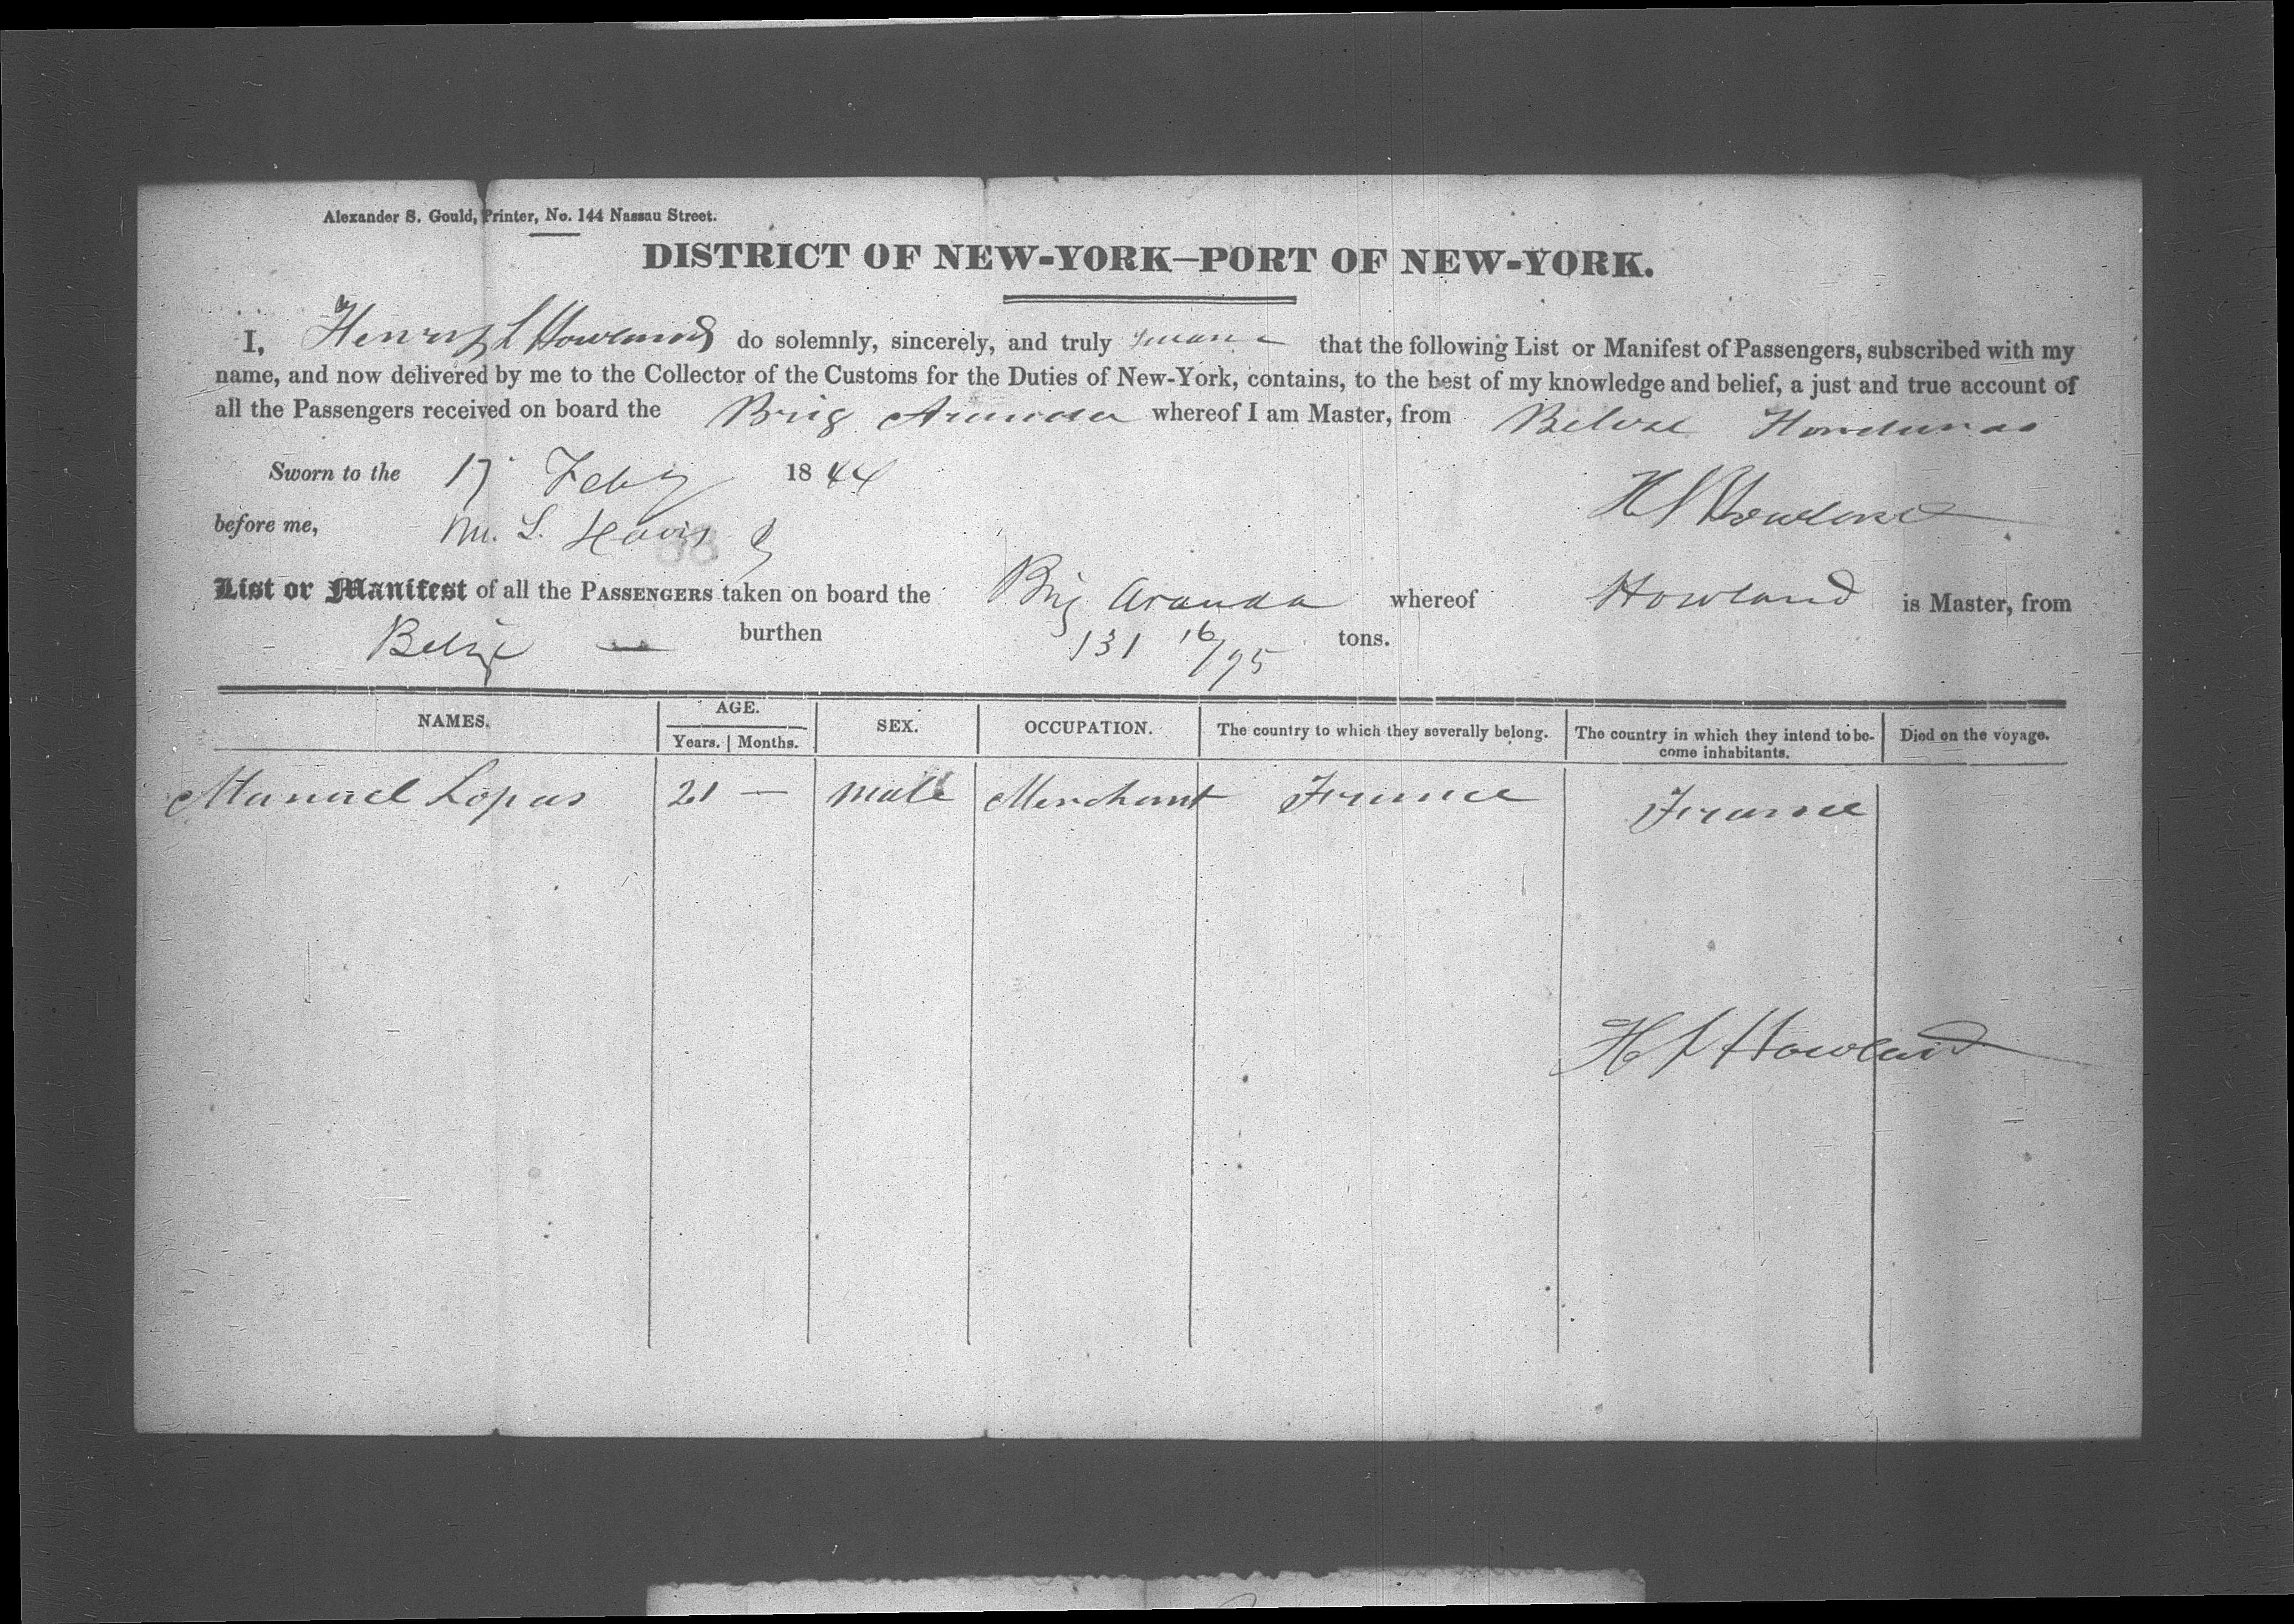 Alexander S. Gould, Printer, No. 144 Nassau Street.
DISTRICT OF NEW-YORK–PORT OF NEW-YORK.
I, Henry L Howland do solemnly, sincerely, and truly swear that the following List or Manifest of Passengers, subscribed with my
name, and now delivered by me to the Collector of the Customs for the Duties of New-York, contains, to the best of my knowledge and belief, a just and true account of
all the Passengers received on board the Brig Arunda whereof I am Master, from Belize Honduras
Sworn to the 17 Feby 1844
H L Howland
before me, M. L. Davis
List or Manifest of all the PASSENGERS taken on board the Brig Aranda whereof Howland is Master, from
Belize — burthen 131 16/95 tons.
NAMES. AGE. SEX. OCCUPATION. The country to which they severally belong. The country in which they intend to be- Died on the voyage.
Years. Months. come inhabitants.
Manuel Lopas 21 — Male Merchant France France
H L Howland